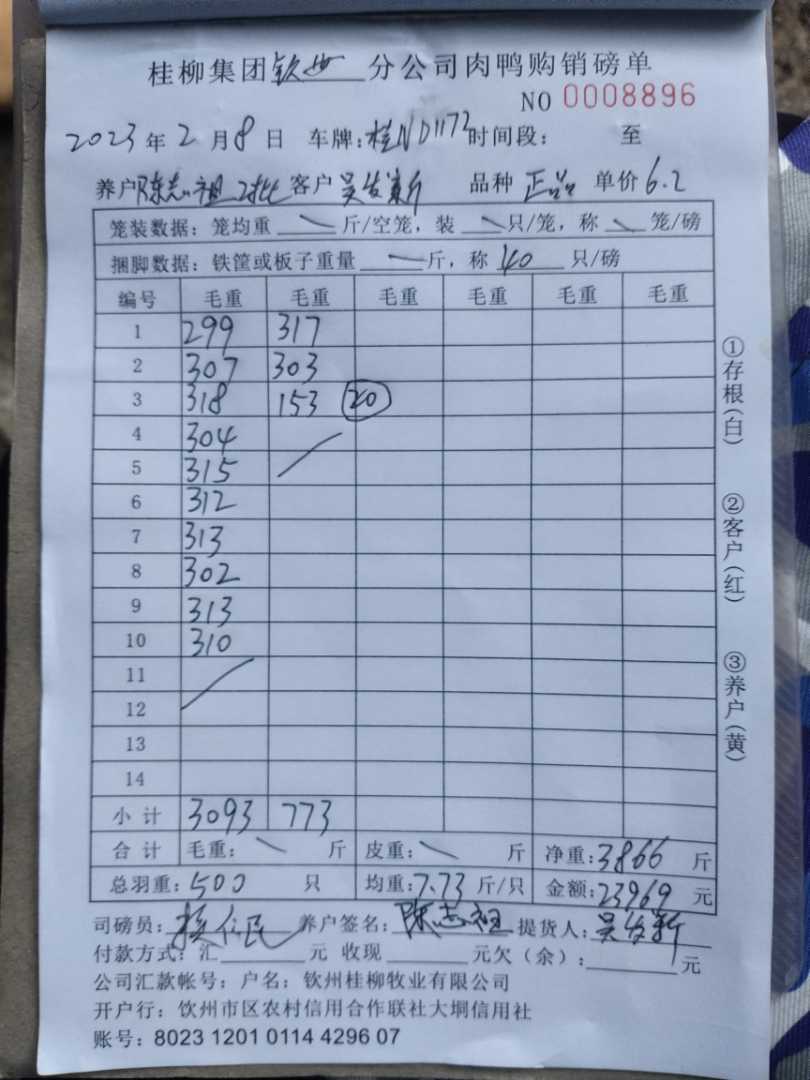 桂柳集团钦州分公司肉鸭购销磅单
NO 0008896
2023年2月8日 车牌:桂ND1172 时间段: 至
养户陈志祖 客户吴发新 品种 正品 单价6.2
笼装数据:笼均重 斤/空笼,装 只/笼,称 笼/磅
捆脚数据:铁筐或板子重量 斤,称 40 只/磅
编号 毛重 毛重 毛重 毛重 毛重 毛重
1 299 317
2 307 303
3 318 153 20
4 304
5 315
6 312
7 313
8 302
9 313
10 310
11
12
13
14
小计 3093 773
合计 毛重: 斤 皮重: 斤 净重:3866 斤
总羽重:500 只 均重:7.73 斤/只 金额:23969 元
司磅员: 养户签名:陈志祖 提货人:吴发新
付款方式:汇 元 收现 元欠(余): 元
公司汇款帐号:户名:钦州桂柳牧业有限公司
开户行:钦州市区农村信用合作联社大垌信用社
账号:8023 1201 0114 4296 07
①存根(白)
②客户(红)
③养户(黄)